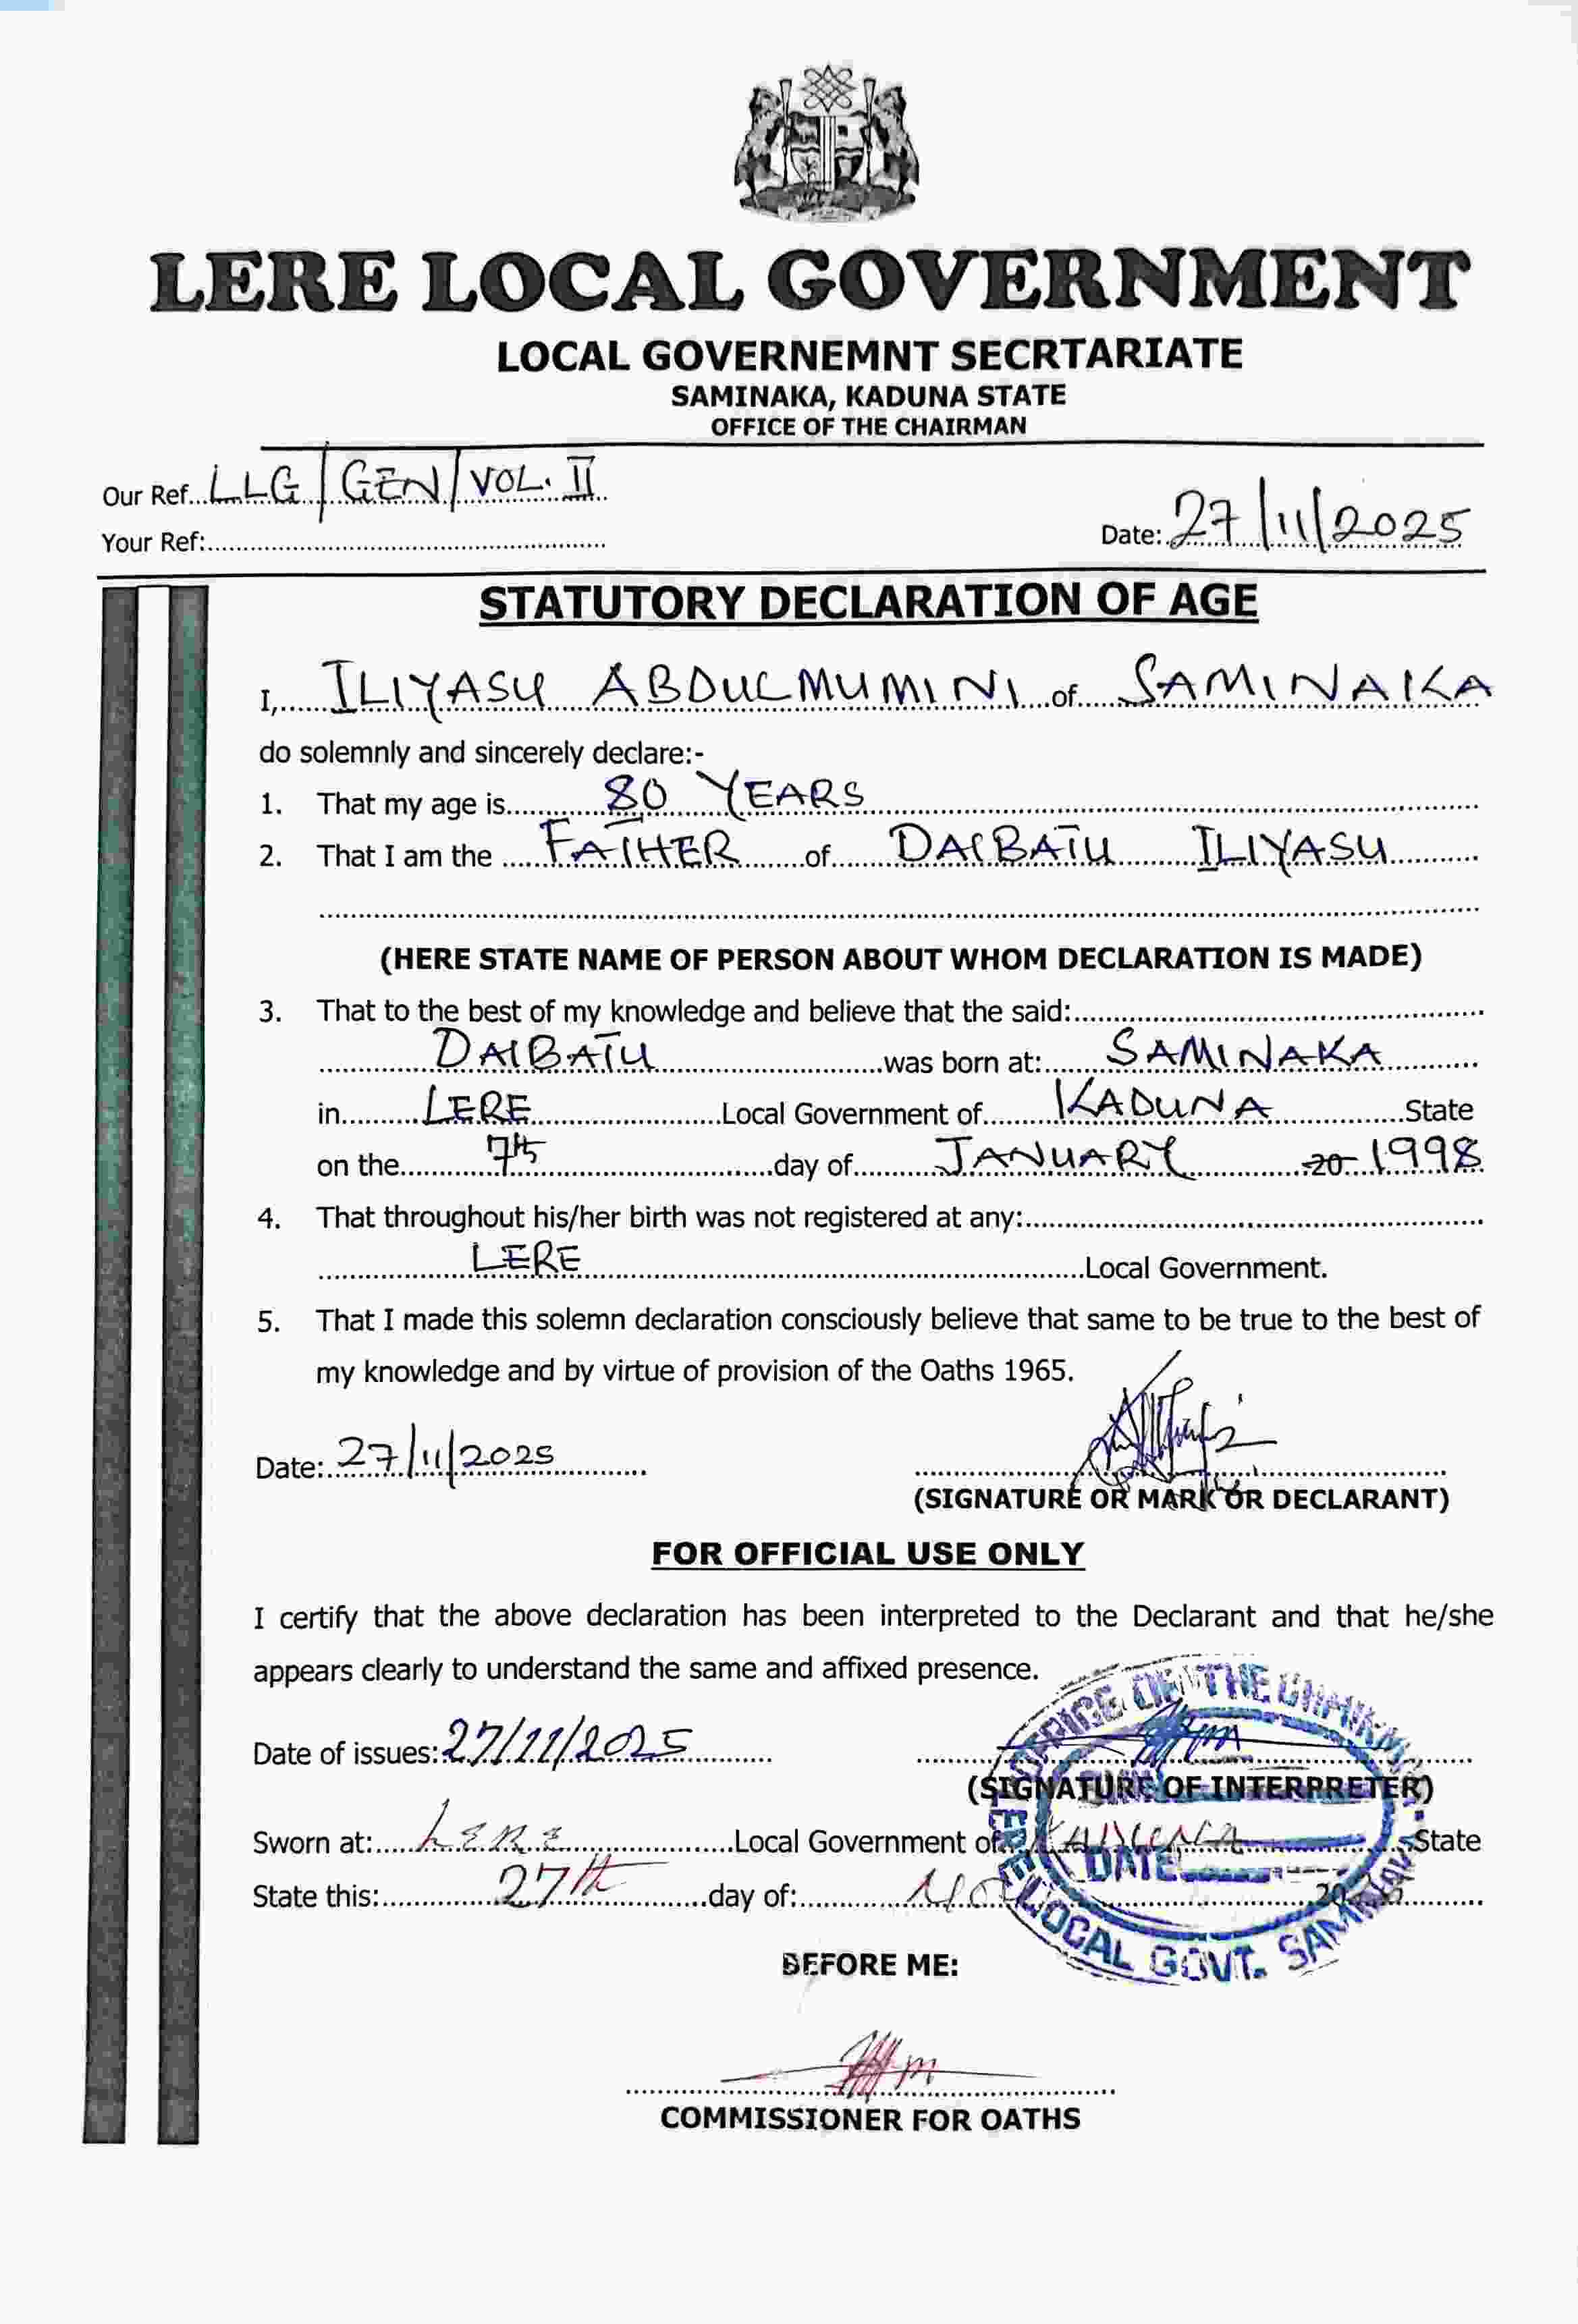 LERE LOCAL GOVERNMENT
LOCAL GOVERNEMNT SECRTARIATE
SAMINAKA, KADUNA STATE
OFFICE OF THE CHAIRMAN
Our Ref...LLG/GEN/VOL. II
Your Ref:.......... Date: 27/11/2025
STATUTORY DECLARATION OF AGE
I,.....ILIYASU ABDULMUMINI of SAMINAKA
do solemnly and sincerely declare:-
1. That my age is..........80 YEARS
2. That I am the .....FATHER.......of.......DALBATU ILIYASU
(HERE STATE NAME OF PERSON ABOUT WHOM DECLARATION IS MADE)
3. That to the best of my knowledge and believe that the said:..........
DALBATU..........was born at:..........SAMINAKA
in..........LERE..........Local Government of..........KADUNA..........State
on the..........7th..........day of..........JANUARY..........20 1998
4. That throughout his/her birth was not registered at any:..........
LERE..........Local Government.
5. That I made this solemn declaration consciously believe that same to be true to the best of
my knowledge and by virtue of provision of the Oaths 1965.
Date: 27/11/2025
(SIGNATURE OR MARK OR DECLARANT)
FOR OFFICIAL USE ONLY
I certify that the above declaration has been interpreted to the Declarant and that he/she
appears clearly to understand the same and affixed presence.
Date of issues: 27/11/2025
(SIGNATURE OF INTERPRETER)
Sworn at:.....LERE..........Local Government of KADUNA State
State this:..........27th..........day of:..........20
OFFICE OF THE CHAIRMAN
DATE
LERE LOCAL GOVT. SAMINAKA
BEFORE ME:
COMMISSIONER FOR OATHS